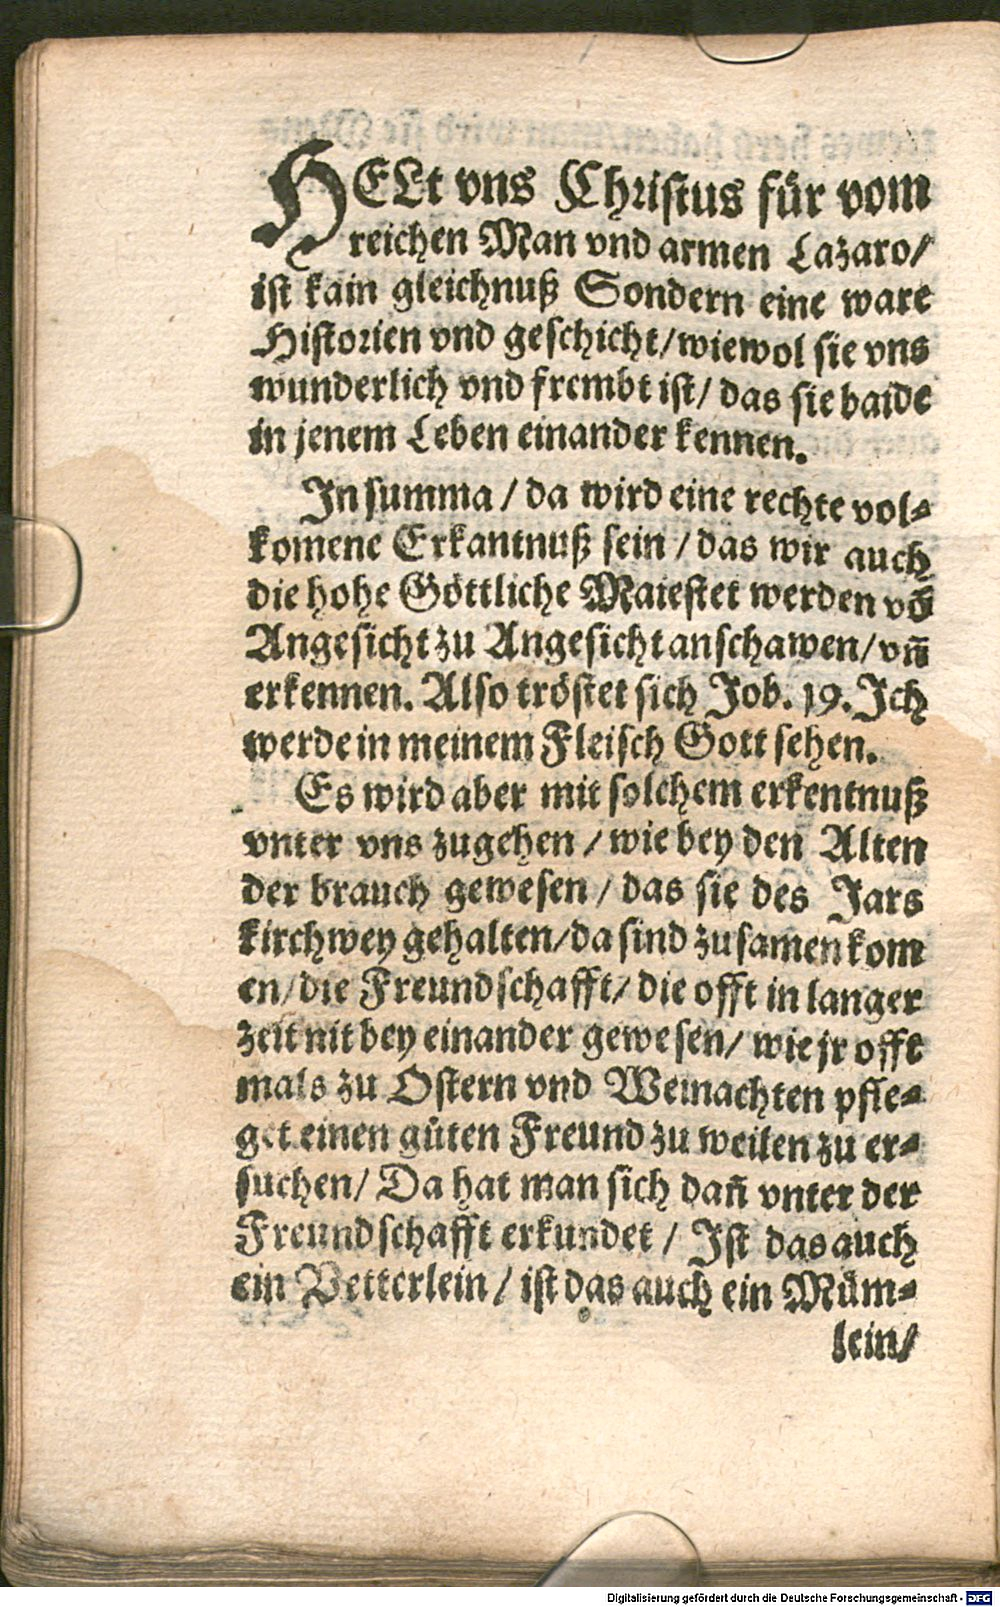 HELt vns Christus für vom
reichen Man vnd armen Lazaro/
ist kain gleichnuß Sondern eine ware
Historien vnd geschicht/wiewol sie vns
wunderlich vnd frembt ist/ das sie baide
in jenem Leben einander kennen.
In summa / da wird eine rechte vol⸗
komene Erkantnuß sein / das wir auch
die hohe Göttliche Maiestet werden võ
Angesicht zu Angesicht anschawen/ vñ
erkennen. Also tröstet sich Job. 19. Ich
werde in meinem Fleisch Gott sehen.
Es wird aber mit solchem erkentnuß
vnter vns zugehen / wie bey den Alten
der brauch gewesen / das sie des Jars
kirchwey gehalten/da sind zusamen kom
en/die Freundschafft/ die offt in langer
zeit nit bey einander gewesen/ wie jr offt
mals zu Ostern vnd Weinachten pfle⸗
get einen güten Freund zu weilen zu er⸗
suchen/ Da hat man sich dañ vnter der
Freundschafft erkundet / Ist das auch
ein Vetterlein / ist das auch ein Müm⸗
lein/
Digitalisierung gefördert durch die Deutsche Forschungsgemeinschaft - DFG